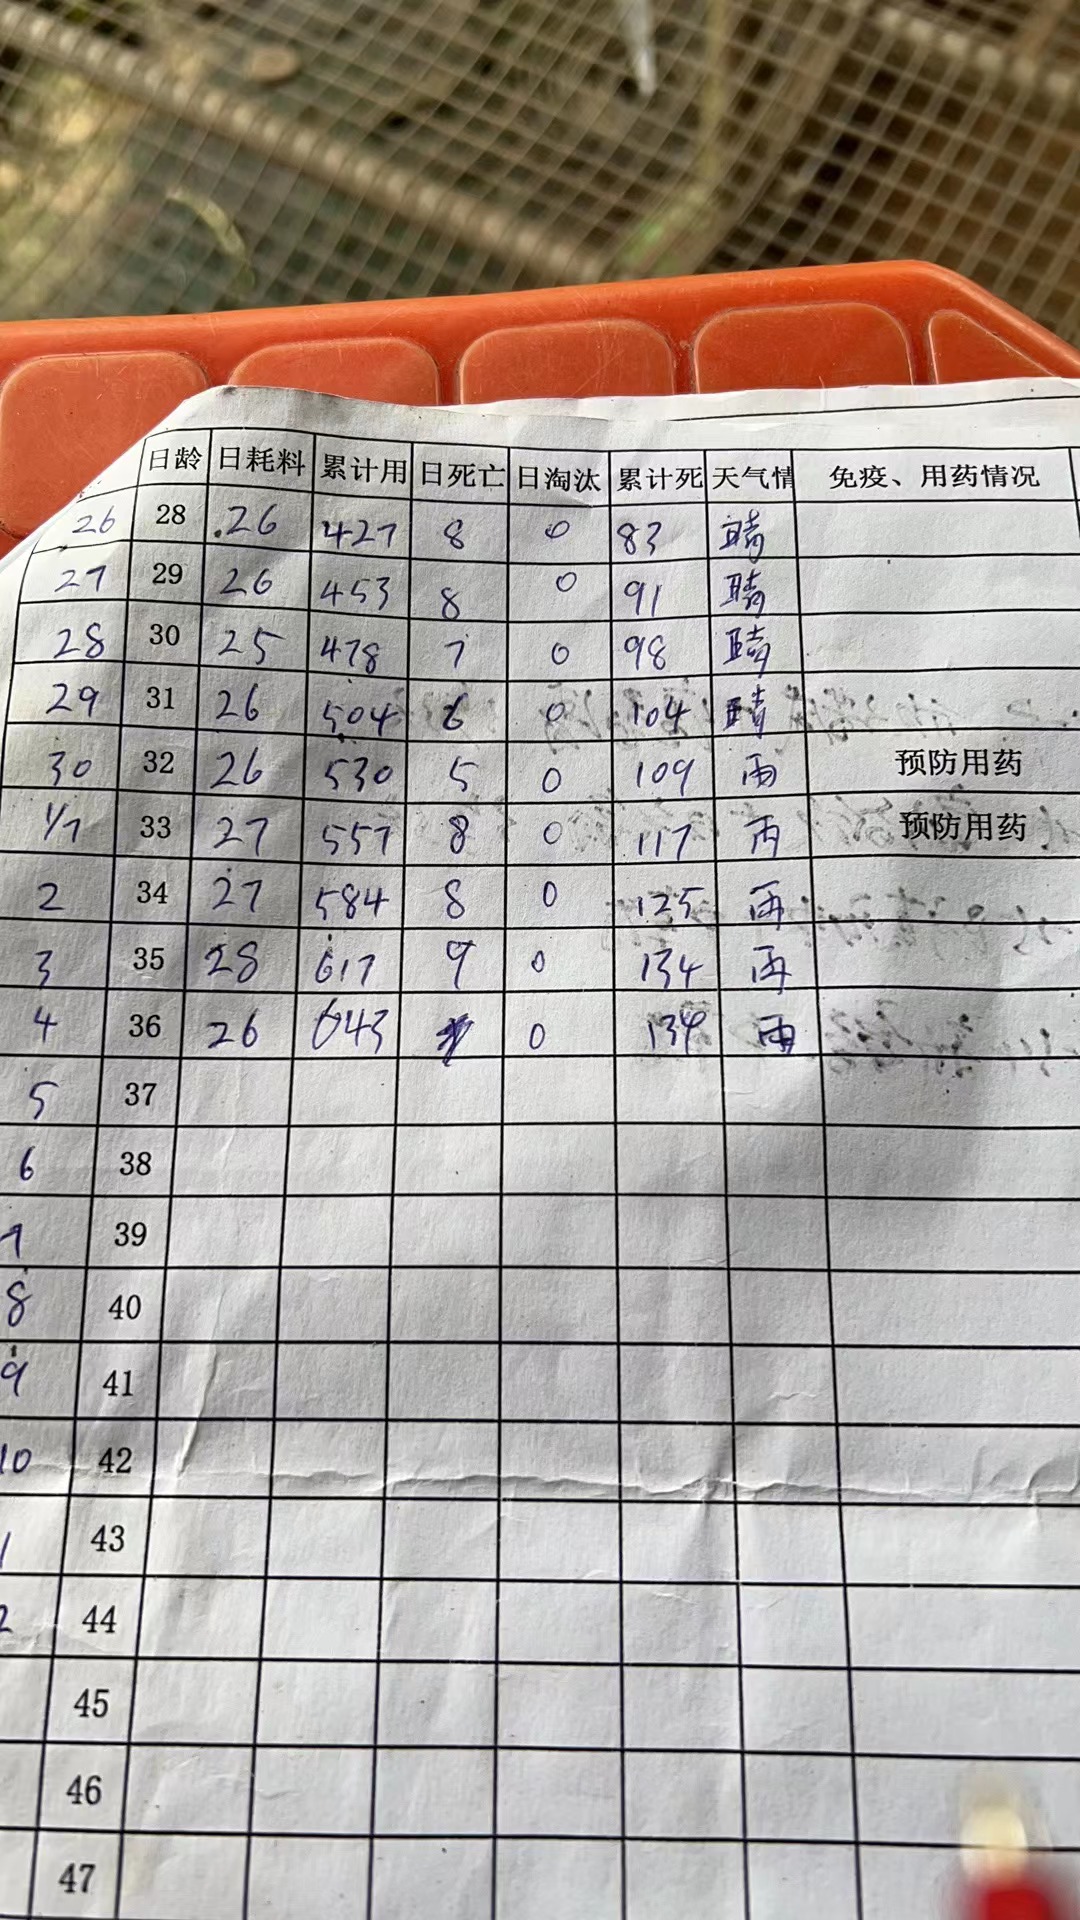 日龄 日耗料 累计用 日死亡 日淘汰 累计死 天气情 免疫、用药情况
26 28 26 427 8 0 83 晴
27 29 26 453 8 0 91 晴
28 30 25 478 7 0 98 晴
29 31 26 504 6 0 104 晴
30 32 26 530 5 0 109 雨 预防用药
1/7 33 27 557 8 0 117 雨 预防用药
2 34 27 584 8 0 125 雨
3 35 28 617 9 0 134 雨
4 36 26 643 0 134 雨
5 37
6 38
7 39
8 40
9 41
10 42
1 43
2 44
45
46
47